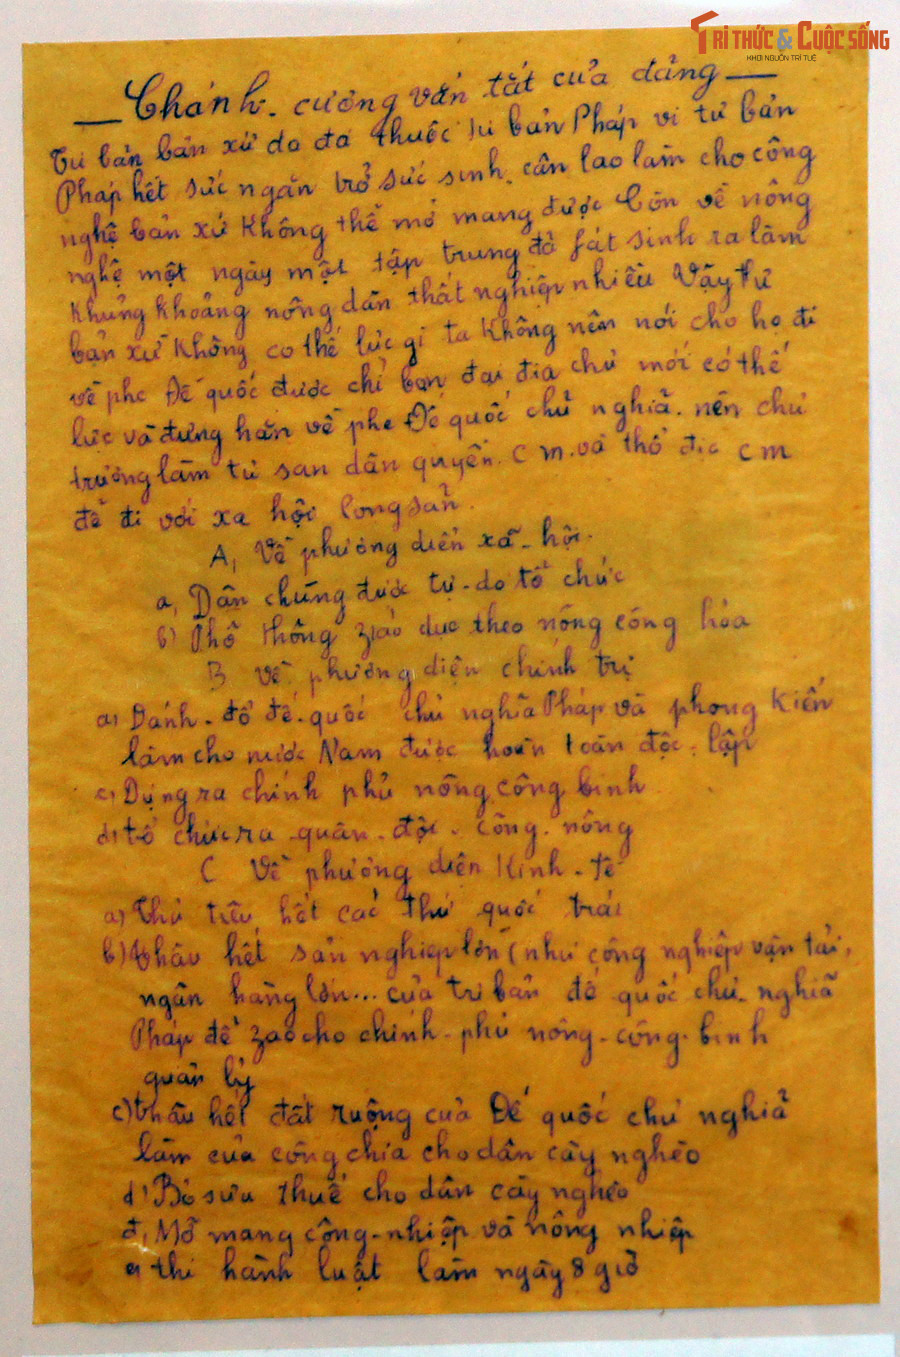 TRI THỨC & CUỘC SỐNG
KHƠI NGUỒN TRÍ TUỆ
— Chánh. cương vắn tắt của đảng —
Tư bản bản xứ do đó thuộc tư bản Pháp vì tư bản
Pháp hết sức ngăn trở sức sinh. cần lao làm cho công
nghệ bản xứ không thể mở mang được Còn về nông
nghệ một ngày một tập trung đã fát sinh ra lắm
khủng khoảng nông dân thất nghiệp nhiều Vậy tư
bản xứ không co thế lực gì ta không nên nói cho họ đi
về phe Đế quốc được chỉ bọn đại địa chủ mới có thế
lực và đứng hẳn về phe Đế quốc chủ nghĩa. nên chủ
trương làm tư san dân quyền. C m. và thổ địa c m
để đi với xa hội congsản.
A, Về phương diển xã-hội.
a, Dân chúng được tự-do tổ chức
b) Phổ thông záo dục theo nông công hóa
B về phương diện chính trị
a) Đánh-đổ đế-quốc chủ nghĩa Pháp và phong kiến
làm cho nước Nam được hoàn toàn độc. lập
c) Dựng ra chính phủ nông công binh
d) tổ chức ra quân-đội. công. nông
C Về phương diện Kinh-tế
a) Thủ tiêu hết các thứ quốc trái
b) thâu hết sản nghiệp lớn (như công nghiệp vận tải,
ngân hàng lớn... của tư bản đế quốc chủ nghĩa
Pháp để zao cho chính-phủ nông-công-binh
quản lý
c) thâu hết đất ruộng của Đế quốc chủ nghĩa
làm của công chia cho dân cày nghèo
d) Bỏ sưu thuế cho dân cày nghèo
đ, Mở mang công-nhiệp và nông nhiệp
e) thi hành luật làm ngày 8 giờ